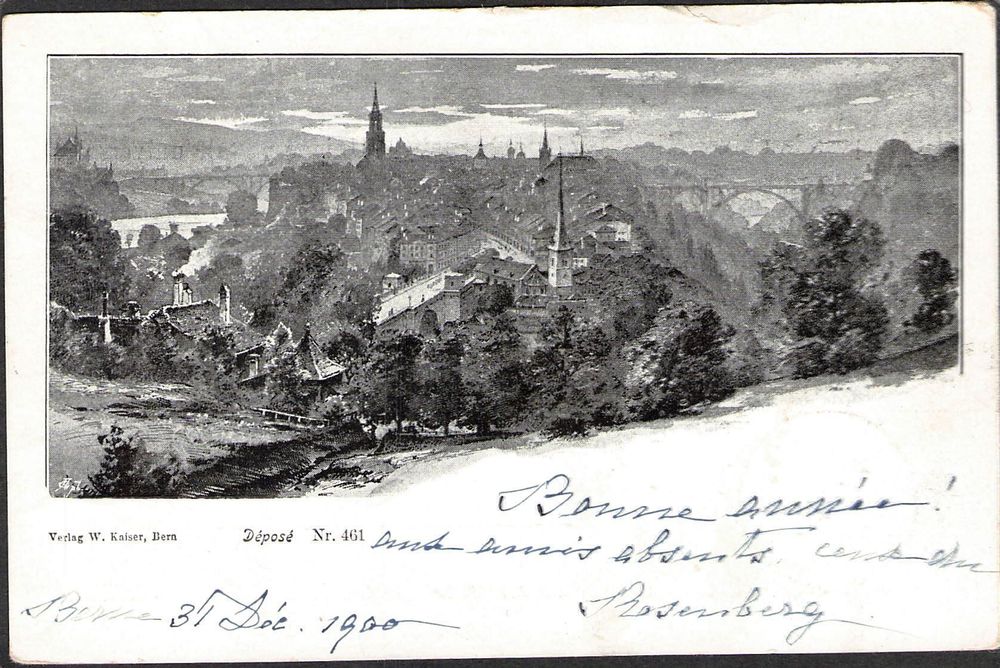 Bonne année!
Verlag W. Kaiser, Bern Déposé Nr. 461
aux amis absents. ceux du
Rosenberg
Berne 31 Déc. 1900